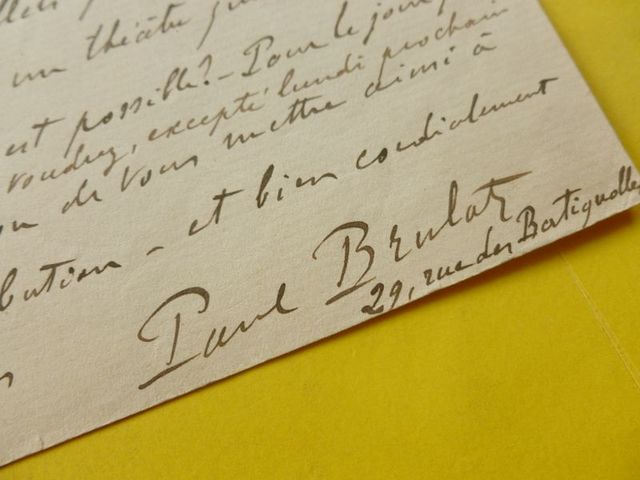 un théâtre
est possible? - Pour le jour
voudrez, excepté lundi prochain
de vous mettre ainsi à
bution - et bien cordialement
Paul Brulat
29, rue des Batignolles